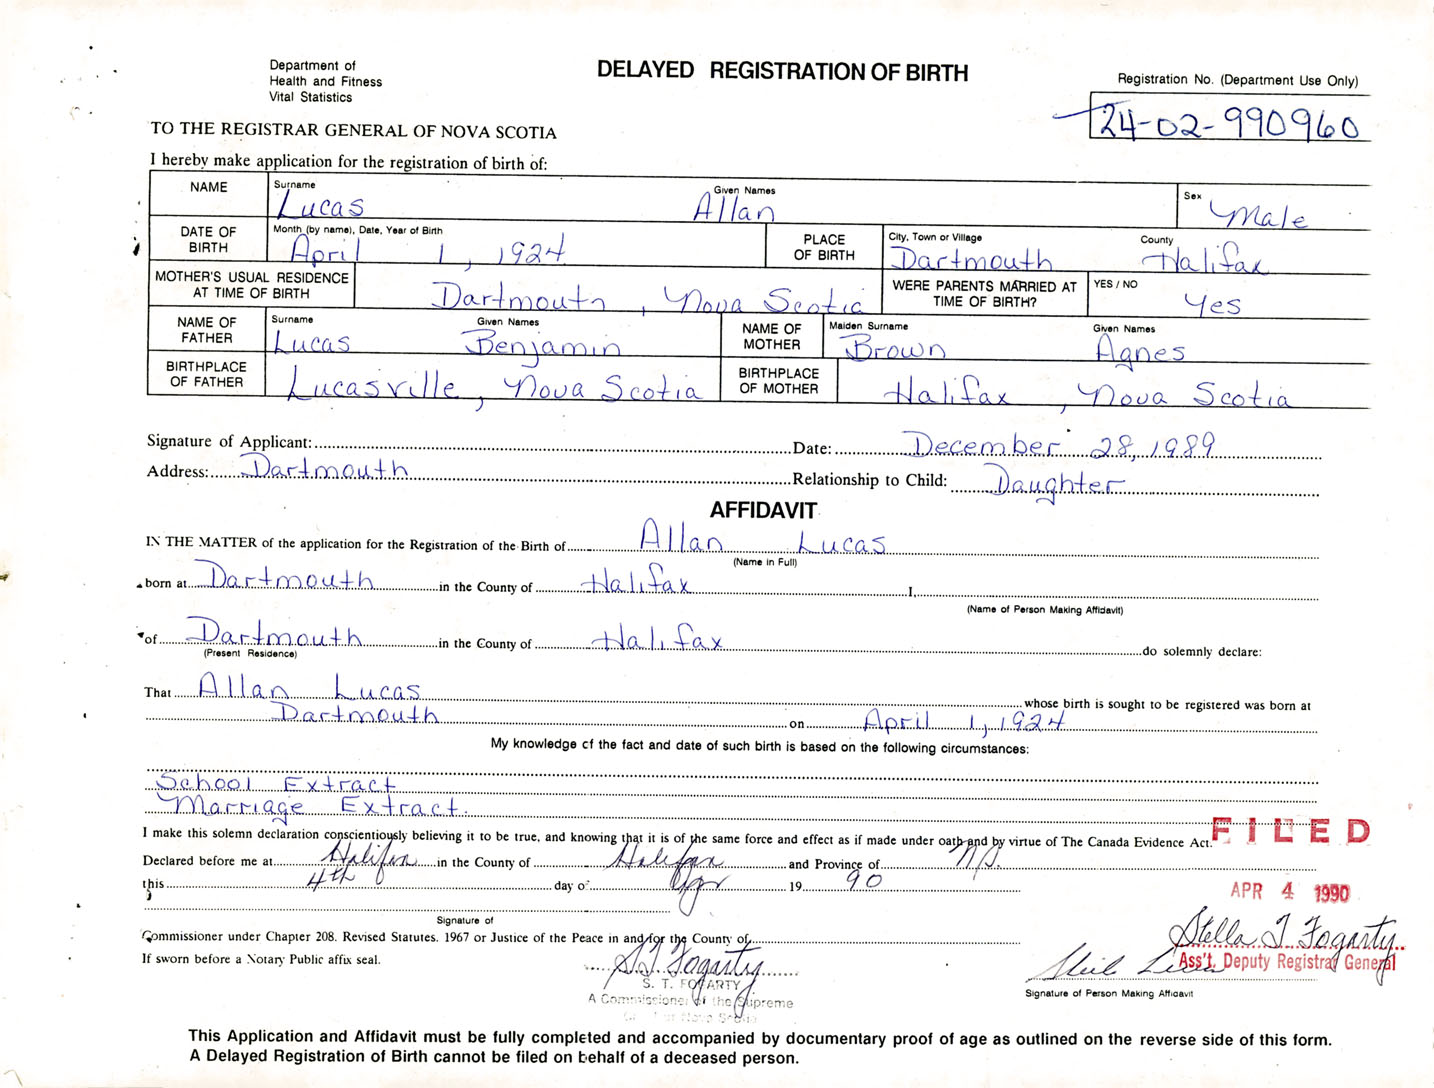 Department of
Health and Fitness
Vital Statistics
DELAYED REGISTRATION OF BIRTH
Registration No. (Department Use Only)
24-02-990960
TO THE REGISTRAR GENERAL OF NOVA SCOTIA
I hereby make application for the registration of birth of:
NAME Surname Lucas Given Names Allan Sex Male
DATE OF BIRTH Month (by name), Date, Year of Birth April 1, 1924 PLACE OF BIRTH City, Town or Village Dartmouth County Halifax
MOTHER'S USUAL RESIDENCE AT TIME OF BIRTH Dartmouth, Nova Scotia WERE PARENTS MARRIED AT TIME OF BIRTH? YES / NO Yes
NAME OF FATHER Surname Lucas Given Names Benjamin NAME OF MOTHER Maiden Surname Brown Given Names Agnes
BIRTHPLACE OF FATHER Lucasville, Nova Scotia BIRTHPLACE OF MOTHER Halifax, Nova Scotia
Signature of Applicant: Date: December 28, 1989
Address: Dartmouth Relationship to Child: Daughter
AFFIDAVIT
IN THE MATTER of the application for the Registration of the Birth of Allan Lucas
(Name in Full)
born at Dartmouth in the County of Halifax I
(Name of Person Making Affidavit)
of Dartmouth in the County of Halifax do solemnly declare:
(Present Residence)
That Allan Lucas whose birth is sought to be registered was born at
Dartmouth on April 1, 1924
My knowledge of the fact and date of such birth is based on the following circumstances:
School Extract
Marriage Extract.
I make this solemn declaration conscientiously believing it to be true, and knowing that it is of the same force and effect as if made under oath and by virtue of The Canada Evidence Act.
FILED
Declared before me at Halifax in the County of Halifax and Province of N.S.
this 4th day of Apr 19 90
APR 4 1990
Signature of
Commissioner under Chapter 208. Revised Statutes. 1967 or Justice of the Peace in and for the County of
Stella T Fogarty
Ass't. Deputy Registrar General
If sworn before a Notary Public affix seal.
S T Fogarty
S. T. FOGARTY
A Commissioner of the Supreme
Nova Scotia
Signature of Person Making Affidavit
This Application and Affidavit must be fully completed and accompanied by documentary proof of age as outlined on the reverse side of this form.
A Delayed Registration of Birth cannot be filed on behalf of a deceased person.